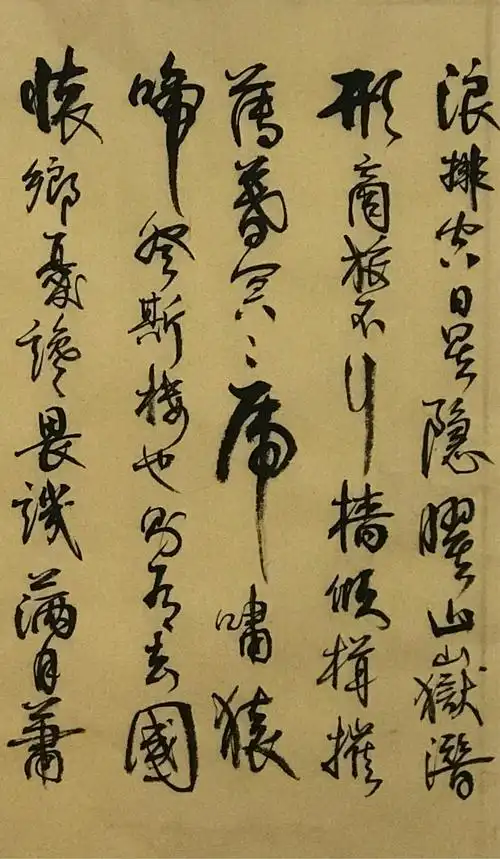 浪排空日星隐曜山嶽潛
形商旅不行檣傾楫摧
薄暮冥〻虎嘯猿
啼登斯樓也則有去國
懷鄉憂讒畏譏滿目蕭